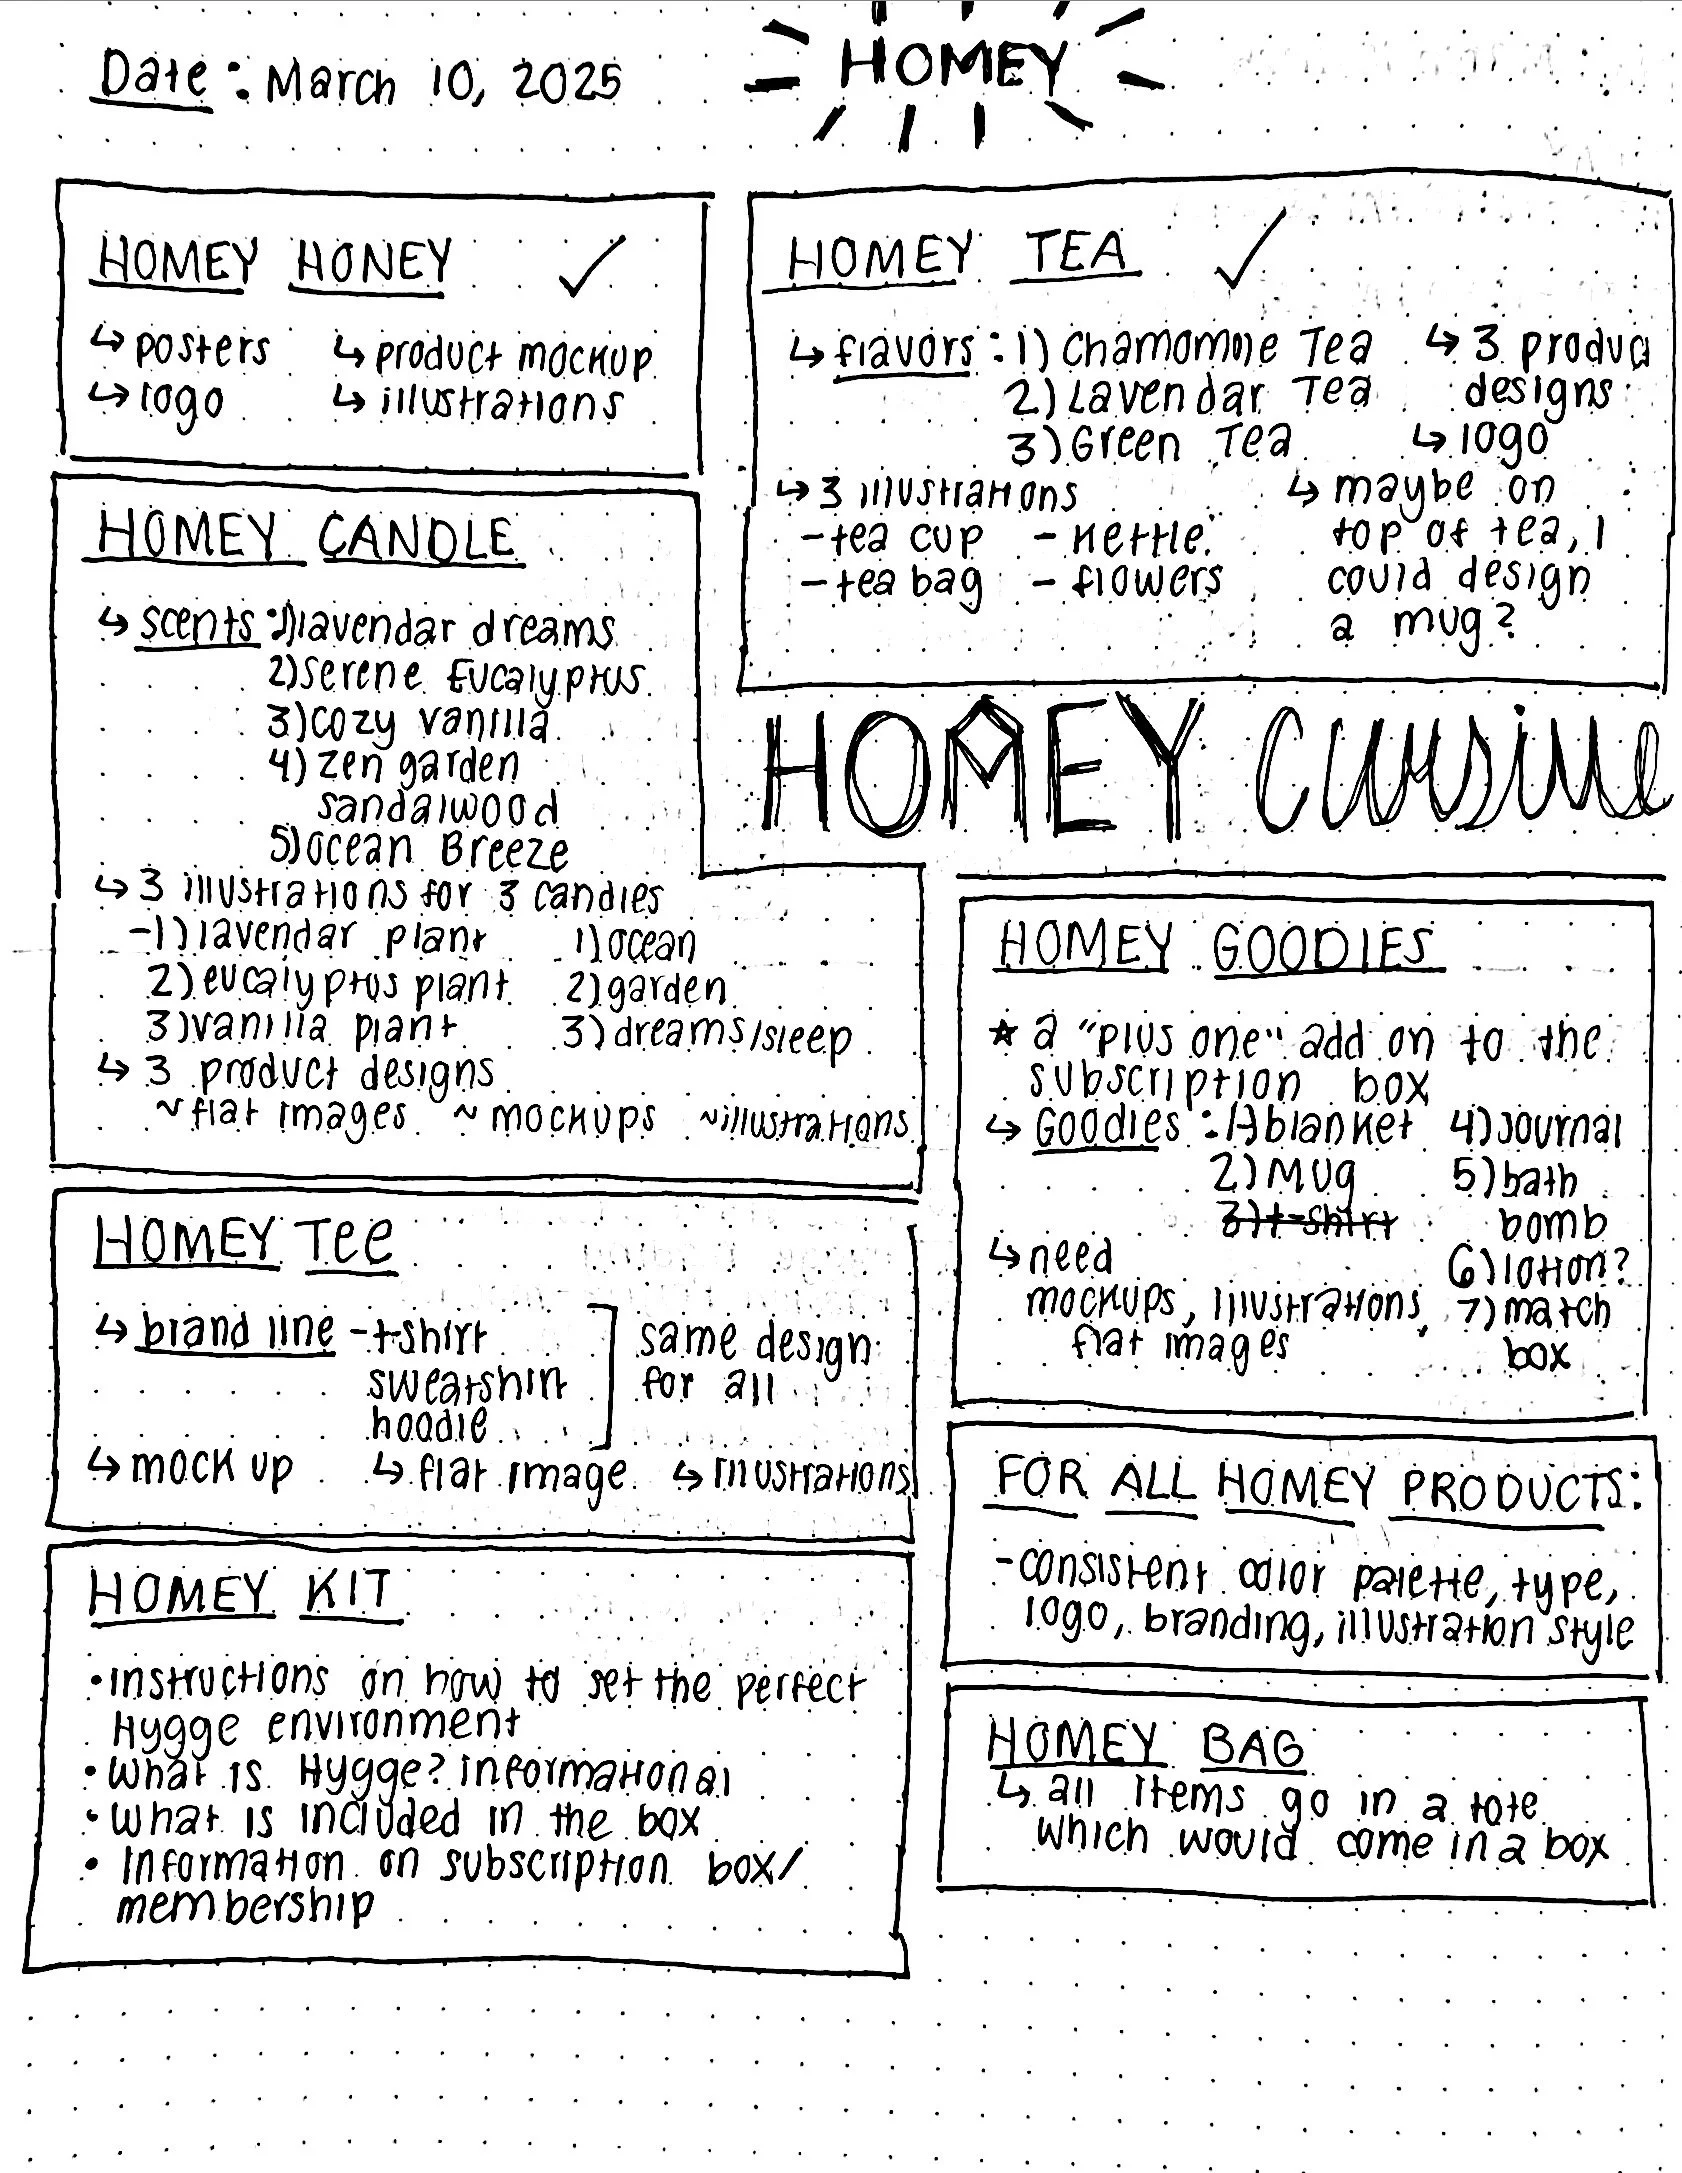 Date: March 10, 2025
HOMEY
HOMEY HONEY ✓
↳ posters ↳ product mockup
↳ logo ↳ illustrations
HOMEY TEA ✓
↳ flavors: 1) Chamomile Tea
2) Lavendar Tea
3) Green Tea
↳ 3 produc
designs
↳ logo
↳ 3 illustrations
- tea cup - kettle
- tea bag - flowers
↳ maybe on
top of tea, I
could design
a mug?
HOMEY CANDLE
↳ scents: 1) lavendar dreams
2) serene Eucalyptus
3) cozy vanilla
4) zen garden
sandalwood
5) Ocean Breeze
↳ 3 illustrations for 3 candles
- 1) lavendar plant 1) ocean
2) eucalyptus plant 2) garden
3) vanilla plant 3) dreams/sleep
↳ 3 product designs
~ flat images ~ mockups ~ illustrations
HOMEY cuisine
HOMEY GOODIES
★ a "plus one" add on to the
subscription box
↳ Goodies: 1) blanket
2) Mug
3) t-shirt
4) Journal
5) bath
bomb
6) lotion?
7) match
box
↳ need
mockups, illustrations,
flat images
HOMEY Tee
↳ brand line - t-shirt
sweatshirt
hoodie
same design
for all
↳ mock up ↳ flat image ↳ illustrations
FOR ALL HOMEY PRODUCTS:
- consistent color palette, type,
logo, branding, illustration style
HOMEY KIT
• instructions on how to set the perfect
Hygge environment
• What is Hygge? informational
• What is included in the box
• Information on subscription box/
membership
HOMEY BAG
↳ all items go in a tote
which would come in a box